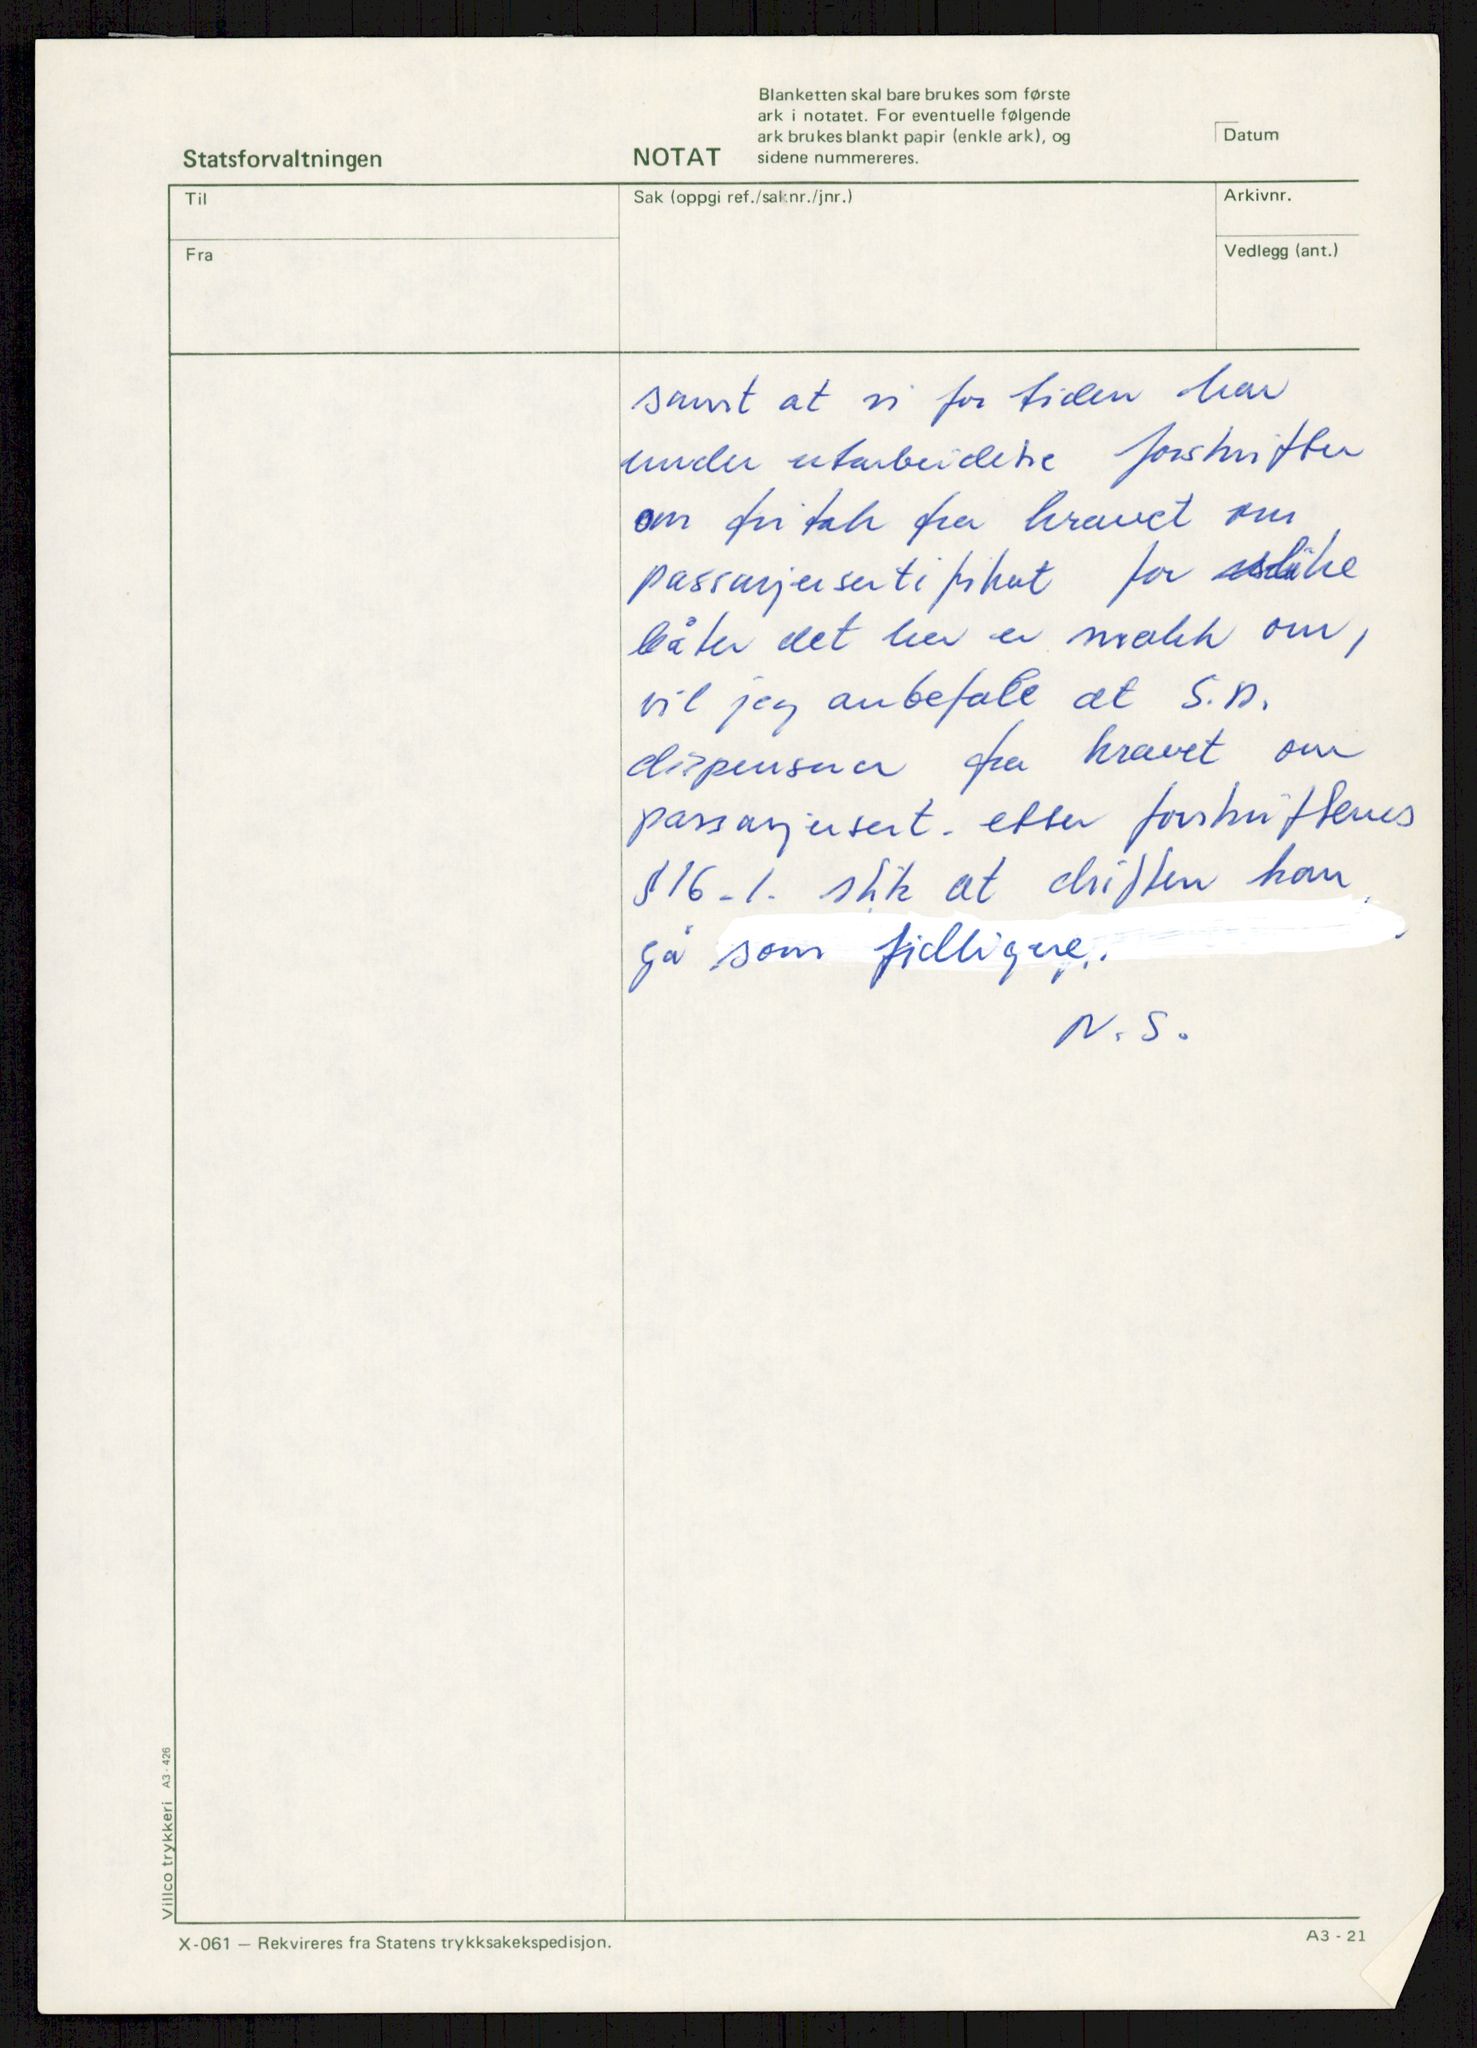 Blanketten skal bare brukes som første
ark i notatet. For eventuelle følgende
ark brukes blankt papir (enkle ark), og
sidene nummereres.
Datum
Statsforvaltningen
NOTAT
Til
Sak (oppgi ref./saknr./jnr.)
Arkivnr.
Fra
Vedlegg (ant.)
samt at vi for tiden har
under utarbeidelse forskrifter
om fritak fra kravet om
passasjersertifikat for slike
båter det her er snakk om,
vil jeg anbefale at S.D.
dispenserer fra kravet om
passasjersert. etter forskriftenes
§ 16-1. slik at driften kan
gå som tidligere.
N.S.
Villco trykkeri A3-426
X-061 – Rekvireres fra Statens trykksakekspedisjon.
A3 - 21